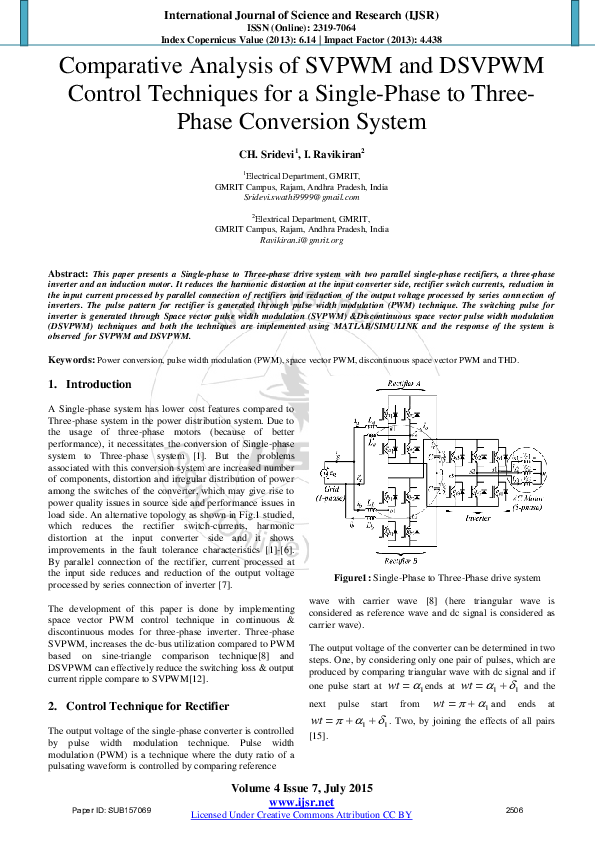 International Journal of Science and Research (IJSR)
ISSN (Online): 2319-7064
Index Copernicus Value (2013): 6.14 | Impact Factor (2013): 4.438
Comparative Analysis of SVPWM and DSVPWM
Control Techniques for a Single-Phase to Three-
Phase Conversion System
CH. Sridevi1, I. Ravikiran2
1Electrical Department, GMRIT,
GMRIT Campus, Rajam, Andhra Pradesh, India
Sridevi.swathi9999@gmail.com
2Elextrical Department, GMRIT,
GMRIT Campus, Rajam, Andhra Pradesh, India
Ravikiran.i@gmrit.org
Abstract: This paper presents a Single-phase to Three-phase drive system with two parallel single-phase rectifiers, a three-phase
inverter and an induction motor. It reduces the harmonic distortion at the input converter side, rectifier switch currents, reduction in
the input current processed by parallel connection of rectifiers and reduction of the output voltage processed by series connection of
inverters. The pulse pattern for rectifier is generated through pulse width modulation (PWM) technique. The switching pulse for
inverter is generated through Space vector pulse width modulation (SVPWM) &Discontinuous space vector pulse width modulation
(DSVPWM) techniques and both the techniques are implemented using MATLAB/SIMULINK and the response of the system is
observed for SVPWM and DSVPWM.
Keywords: Power conversion, pulse width modulation (PWM), space vector PWM, discontinuous space vector PWM and THD.
1. Introduction
A Single-phase system has lower cost features compared to
Three-phase system in the power distribution system. Due to
the usage of three-phase motors (because of better
performance), it necessitates the conversion of Single-phase
system to Three-phase system [1]. But the problems
associated with this conversion system are increased number
of components, distortion and irregular distribution of power
among the switches of the converter, which may give rise to
power quality issues in source side and performance issues in
load side. An alternative topology as shown in Fig.1 studied,
which reduces the rectifier switch-currents, harmonic
distortion at the input converter side and it shows
improvements in the fault tolerance characteristics [1]-[6].
By parallel connection of the rectifier, current processed at
the input side reduces and reduction of the output voltage
processed by series connection of inverter [7].
The development of this paper is done by implementing
space vector PWM control technique in continuous &
discontinuous modes for three-phase inverter. Three-phase
SVPWM, increases the dc-bus utilization compared to PWM
based on sine-triangle comparison technique[8] and
DSVPWM can effectively reduce the switching loss & output
current ripple compare to SVPWM[12].
2. Control Technique for Rectifier
The output voltage of the single-phase converter is controlled
by pulse width modulation technique. Pulse width
modulation (PWM) is a technique where the duty ratio of a
pulsating waveform is controlled by comparing reference
Rectifier A
Grid
(1-phase)
Inverter
(3-phase)
Rectifier B
Figure1 : Single-Phase to Three-Phase drive system
wave with carrier wave [8] (here triangular wave is
considered as reference wave and dc signal is considered as
carrier wave).
The output voltage of the converter can be determined in two
steps. One, by considering only one pair of pulses, which are
produced by comparing triangular wave with dc signal and if
one pulse start at wt = α1 ends at wt = α1 + δ1 and the
next pulse start from wt = π + α1 and ends at
wt = π + α1 + δ1. Two, by joining the effects of all pairs
[15].
Volume 4 Issue 7, July 2015
www.ijsr.net
Paper ID: SUB157069
Licensed Under Creative Commons Attribution CC BY
2506